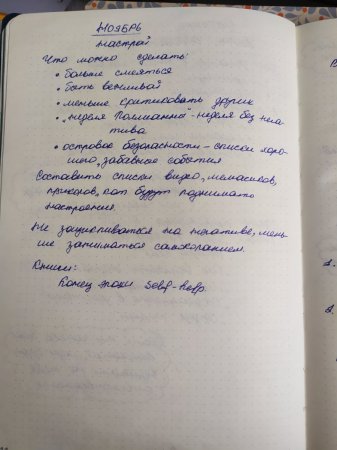 НОЯБРЬ
Настрой
Что можно сделать:
• больше смеяться
• быть вежливой
• меньше критиковать других
• „неделя Поллианны" - неделя без нега-
тива
• островок безопасности - списки хоро-
шего, забавные события
Составить списки видео, мемасиков,
приколов, кот будут поднимать
настроение.
Не зацикливаться на негативе, мень-
ше заниматься самокопанием.
Книги:
Конец эпохи self-help.